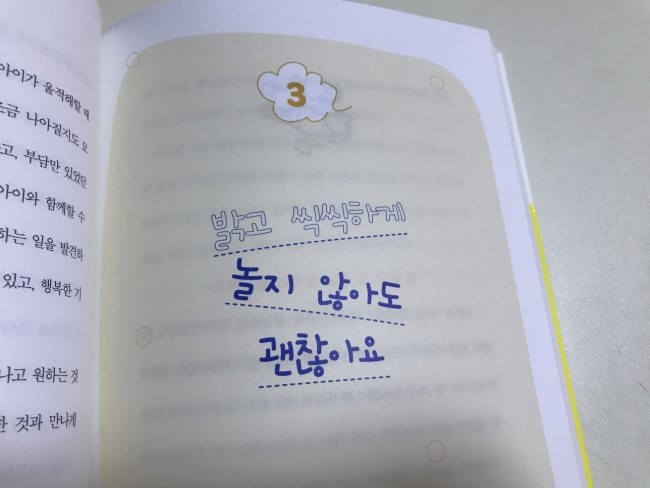 아이가 울적해할 때
조금 나아질지도 모
고, 부담만 있었던
아이와 함께할 수
하는 일을 발견하
있고, 행복한 기
나고 원하는 것
한 것과 만나게
3
밝고 씩씩하게
놀지 않아도
괜찮아요